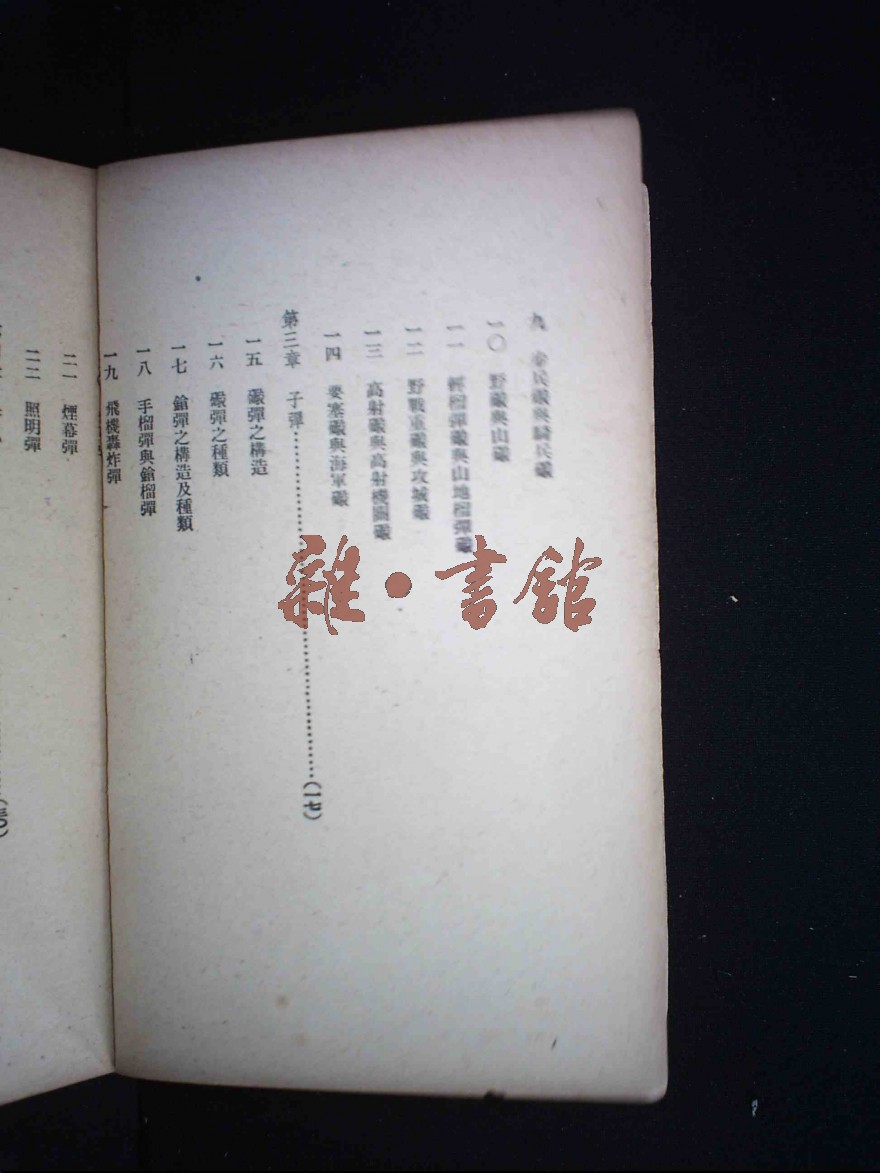 九　步兵礮與騎兵礮
一〇　野礮與山礮
一一　輕榴彈礮與山地榴彈礮
一二　野戰重礮與攻城礮
一三　高射礮與高射機關礮
一四　要塞礮與海軍礮
第三章　子彈……………………………(一七)
一五　礮彈之構造
一六　礮彈之種類
一七　鎗彈之構造及種類
一八　手榴彈與鎗榴彈
一九　飛機轟炸彈
二一　煙幕彈
二二　照明彈
(三〇)
雜·書館